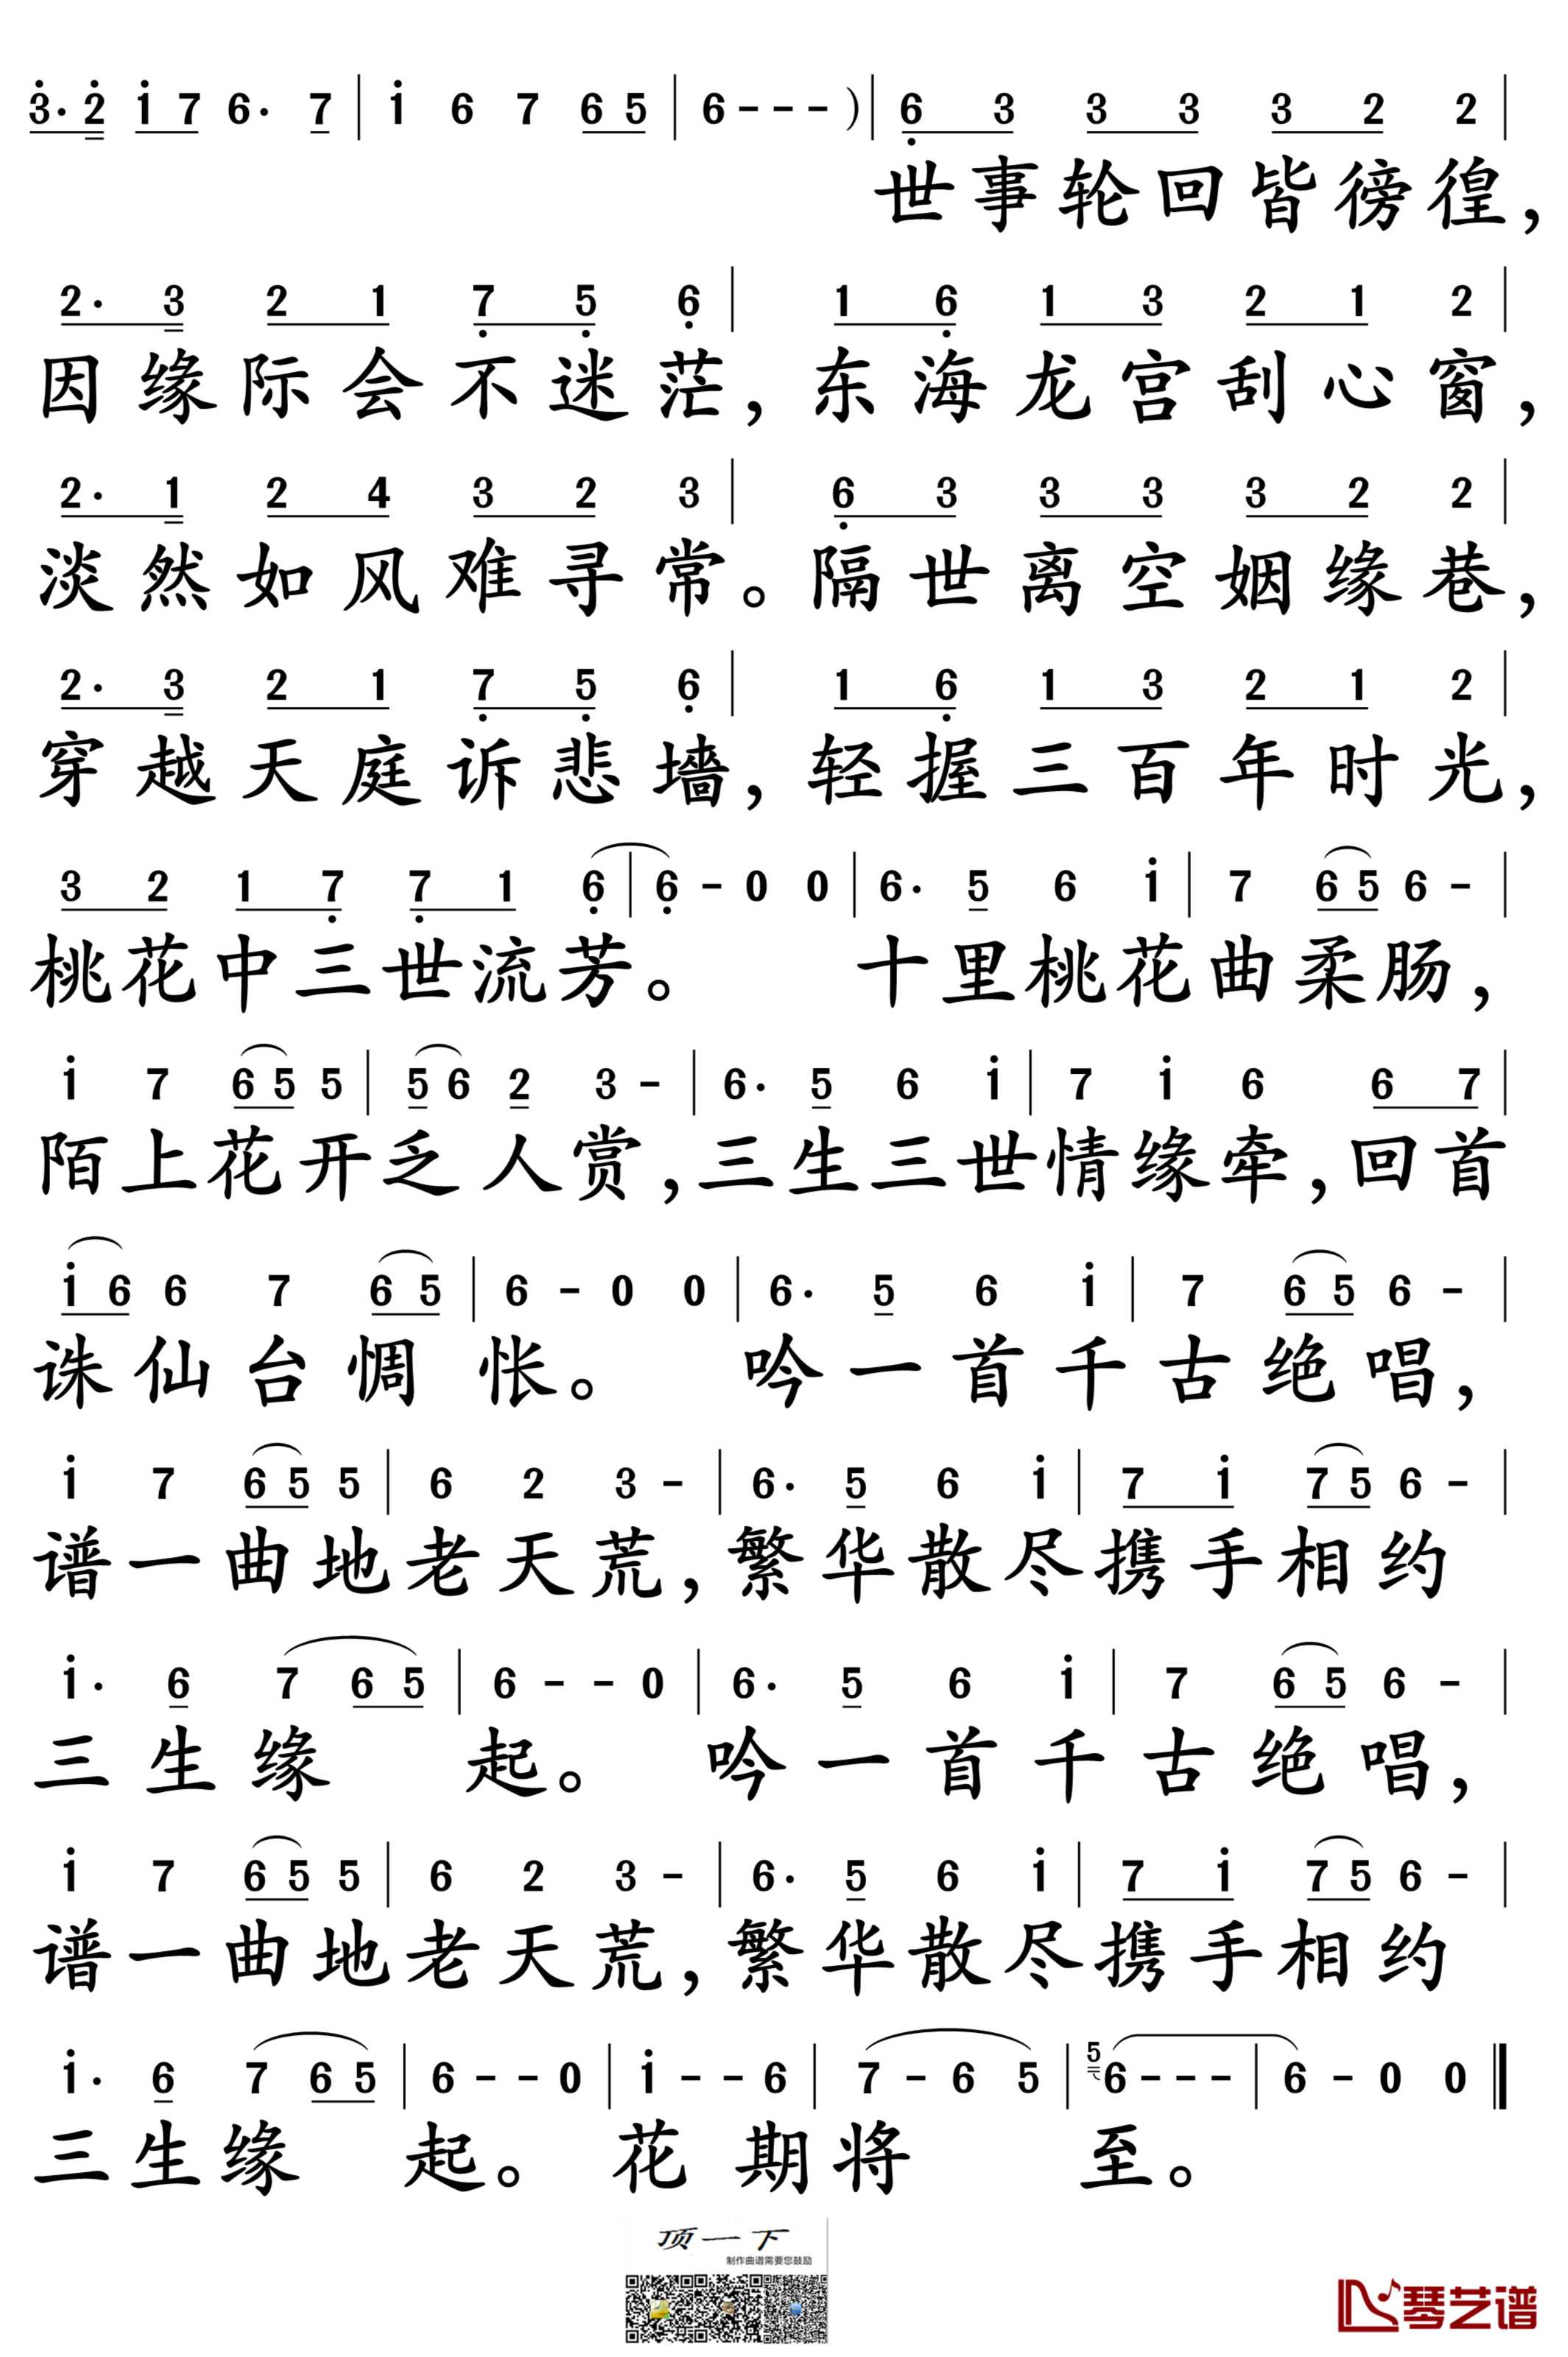 3̇· 2̇ 1̇ 7 6· 7 | 1̇ 6 7 6 5 | 6 - - - ) | 6̣ 3 3 3 3 2 2 |
世事轮回皆徬徨，
2· 3 2 1 7̣ 5̣ 6̣ | 1 6̣ 1 3 2 1 2 |
因缘际会不迷茫，东海龙宫刮心窗，
2· 1 2 4 3 2 3 | 6̣ 3 3 3 3 2 2 |
淡然如风难寻常。隔世离空姻缘巷，
2· 3 2 1 7̣ 5̣ 6̣ | 1 6̣ 1 3 2 1 2 |
穿越天庭诉悲墙，轻握三百年时光，
3 2 1 7̣ 7̣ 1 6̣ | 6̣ - 0 0 | 6· 5 6 1̇ | 7 6 5 6 - |
桃花中三世流芳。 十里桃花曲柔肠，
1̇ 7 6 5 5 | 5 6 2 3 - | 6· 5 6 1̇ | 7 1̇ 6 6 7 |
陌上花开乏人赏，三生三世情缘牵，回首
1̇ 6 6 7 6 5 | 6 - 0 0 | 6· 5 6 1̇ | 7 6 5 6 - |
诛仙台惆怅。 吟一首千古绝唱，
1̇ 7 6 5 5 | 6 2 3 - | 6· 5 6 1̇ | 7 1̇ 7 5 6 - |
谱一曲地老天荒，繁华散尽携手相约
1̇· 6 7 6 5 | 6 - - 0 | 6· 5 6 1̇ | 7 6 5 6 - |
三生缘 起。 吟一首千古绝唱，
1̇ 7 6 5 5 | 6 2 3 - | 6· 5 6 1̇ | 7 1̇ 7 5 6 - |
谱一曲地老天荒，繁华散尽携手相约
1̇· 6 7 6 5 | 6 - - 0 | 1̇ - - 6 | 7 - 6 5 | 5 6 - - - | 6 - 0 0 ‖
三生缘 起。 花期将 至。
顶一下
制作曲谱需要您鼓励
琴艺谱